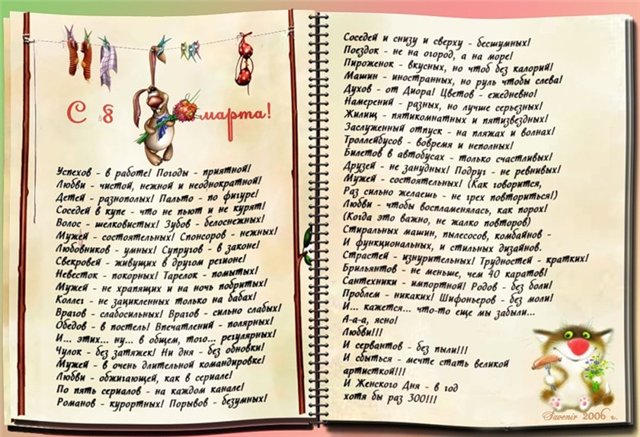 С 8 марта!
Успехов - в работе! Погоды - приятной!
Любви - чистой, нежной и неоднократной!
Детей - разнополых! Пальто - по фигуре!
Соседей в купе - что не пьют и не курят!
Волос - шелковистых! Зубов - белоснежных!
Мужей - состоятельных! Спонсоров - нежных!
Любовников - умных! Супругов - в законе!
Свекровей - живущих в другом регионе!
Невесток - покорных! Тарелок - помытых!
Мужей - не храпящих и на ночь побритых!
Коллег - не зацикленных только на бабах!
Врагов - слабосильных! Врагов - сильно слабых!
Обедов - в постель! Впечатлений - полярных!
И... этих... ну... в общем, того... регулярных!
Чулок - без затяжек! Ни дня - без обновки!
Мужей - в очень длительной командировке!
Любви - обжигающей, как в сериале!
По пять сериалов - на каждом канале!
Романов - курортных! Порывов - безумных!
Соседей и снизу и сверху - бесшумных!
Поездок - не на огород, а на море!
Пироженок - вкусных, но чтоб без калорий!
Машин - иностранных, но руль чтобы слева!
Духов - от Диора! Цветов - ежедневно!
Намерений - разных, но лучше серьезных!
Жилищ - пятикомнатных и пятизвездных!
Заслуженный отпуск - на пляжах и волнах!
Троллейбусов - вовремя и неполных!
Билетов в автобусах - только счастливых!
Друзей - не занудных! Подруг - не ревнивых!
Мужей - состоятельных! (Как говорится,
Раз сильно желаешь - не грех повториться!)
Любви - чтобы воспламенялась, как порох!
(Когда это важно, не жалко повторов)
Стиральных машин, пылесосов, комбайнов -
И функциональных, и стильных дизайнов.
Страстей - изнурительных! Трудностей - кратких!
Брильянтов - не меньше, чем 40 каратов!
Сантехники - импортной! Родов - без боли!
Проблем - никаких! Шифоньеров - без моли!
И... кажется... что-то еще мы забыли...
А-а-а, ясно!
Любви!!!
И сервантов - без пыли!!!
И сбыться - мечте стать великой
артисткой!!!
И Женского Дня - в год
хотя бы раз 300!!!
Savenir 2006 г.